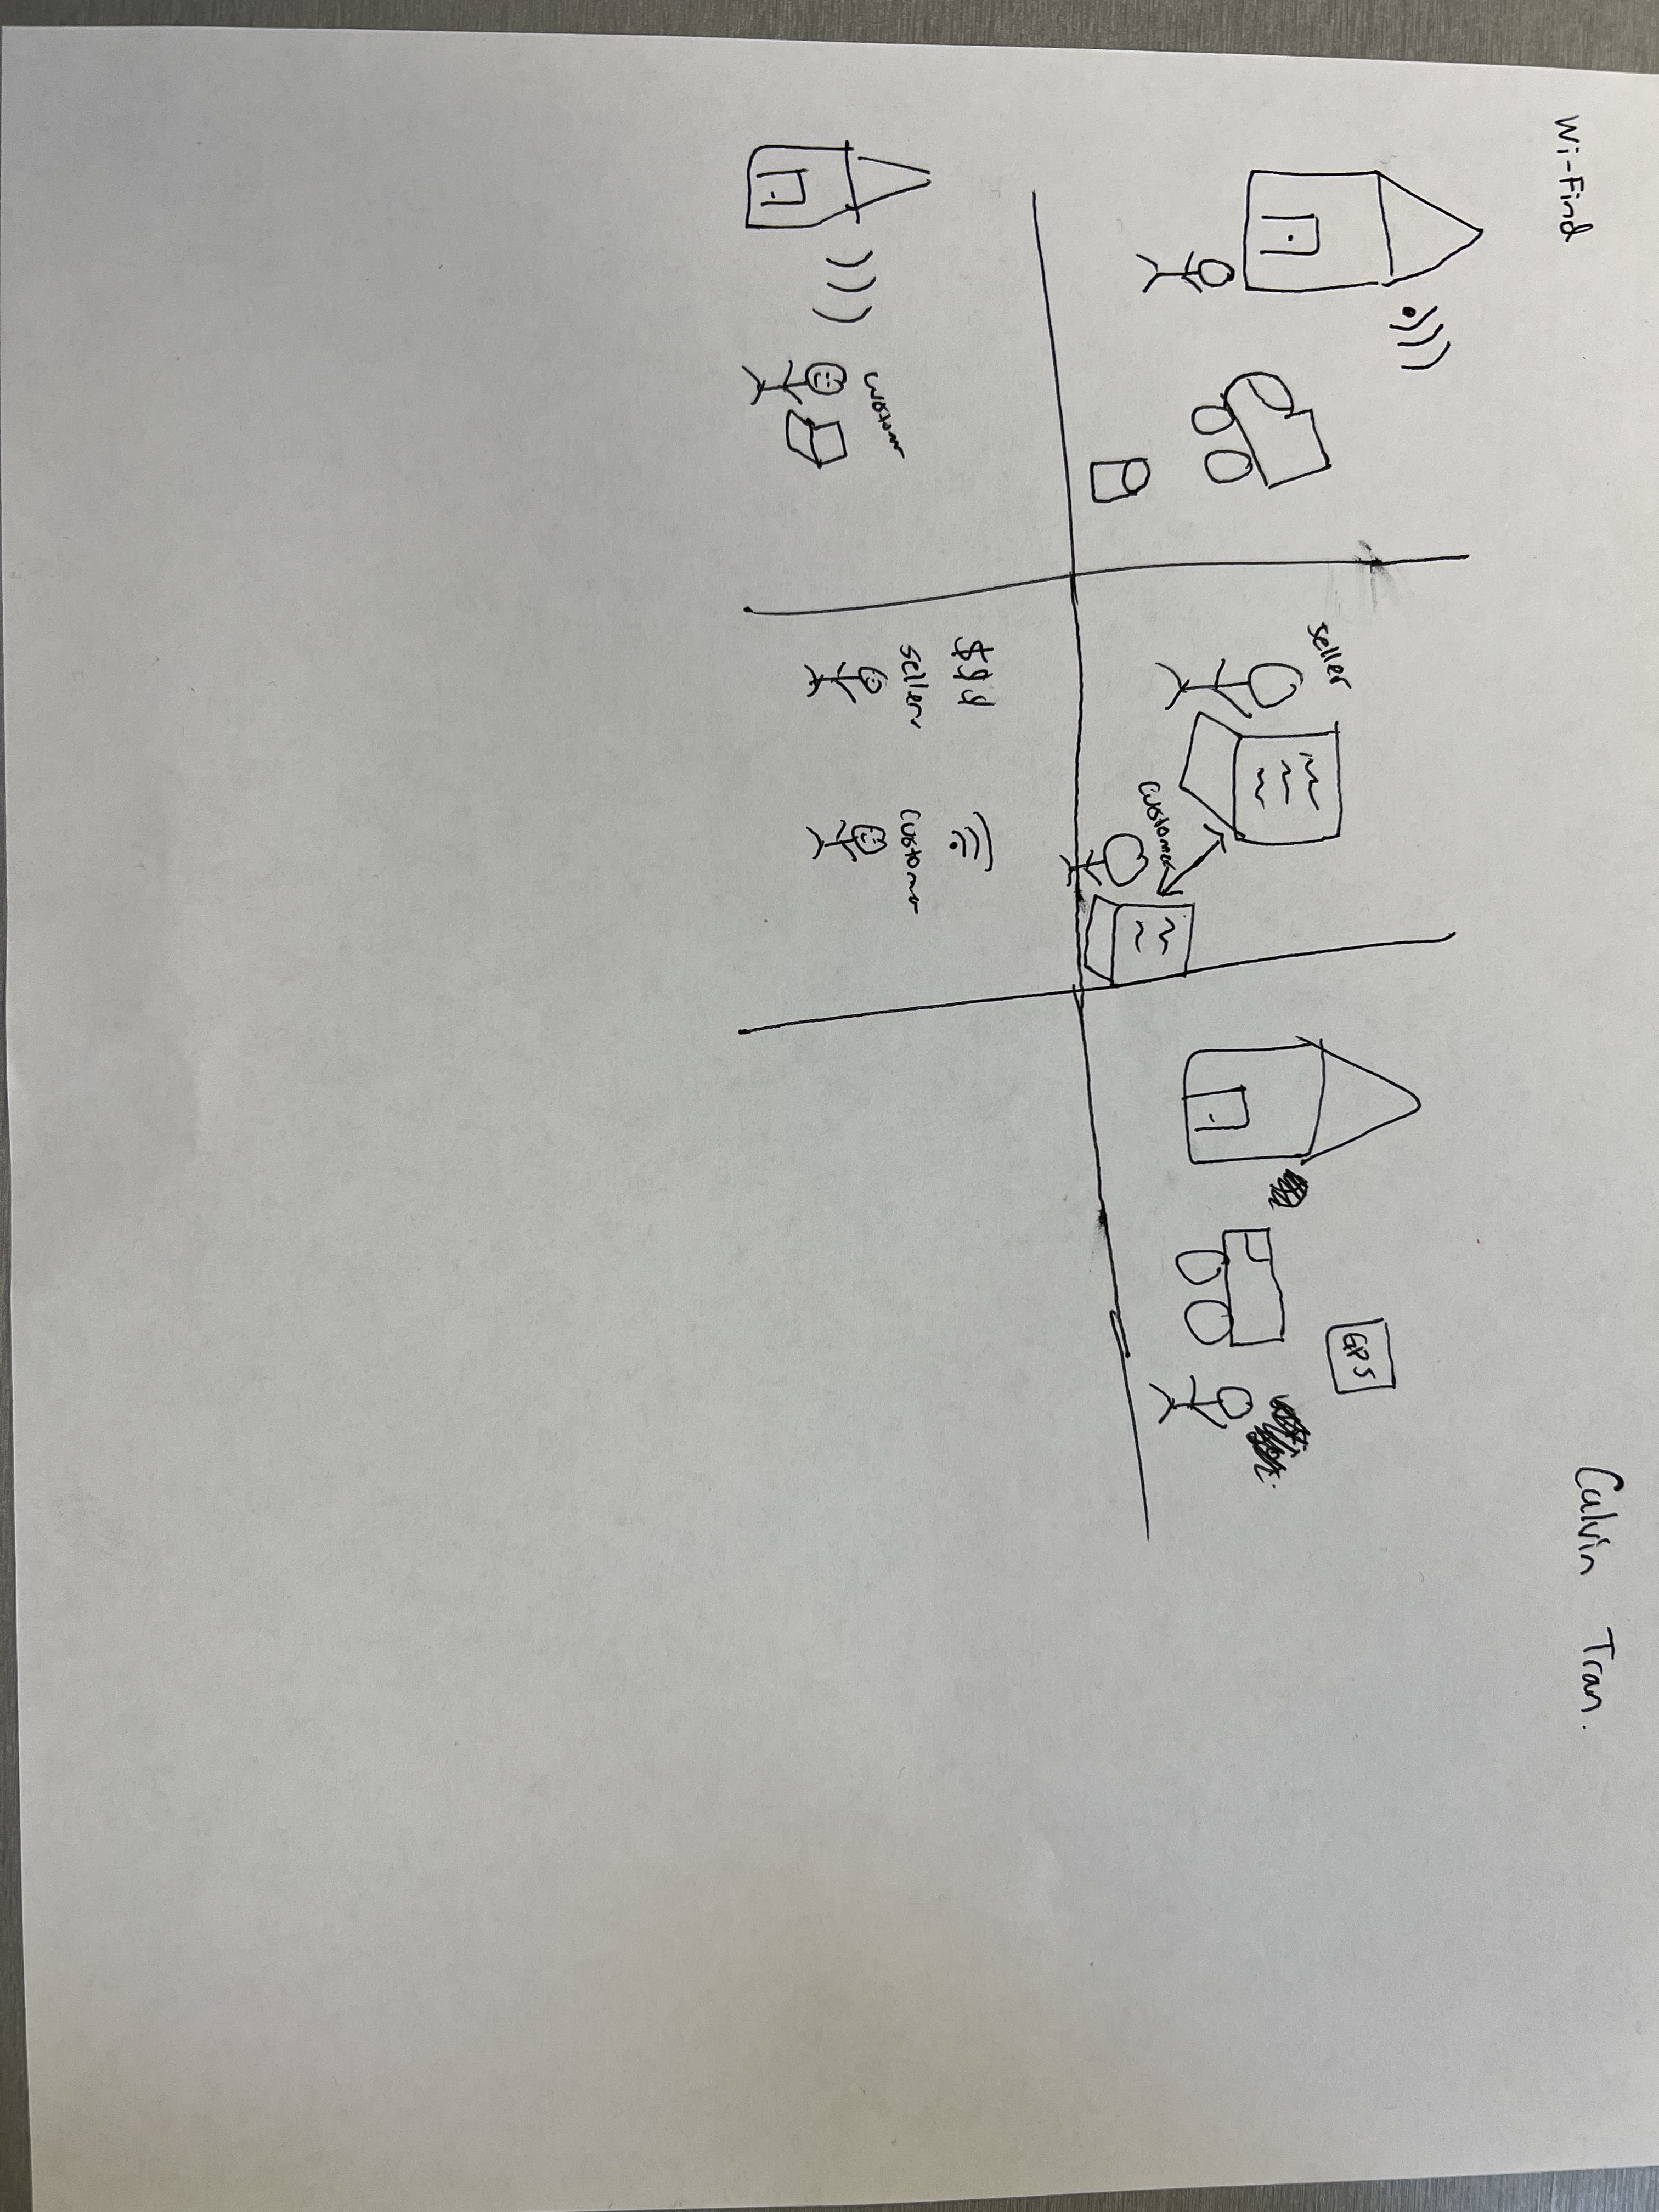 Wi-Find
Calvin Tran.
seller
customer
GPS
customer
$$$
seller
customer